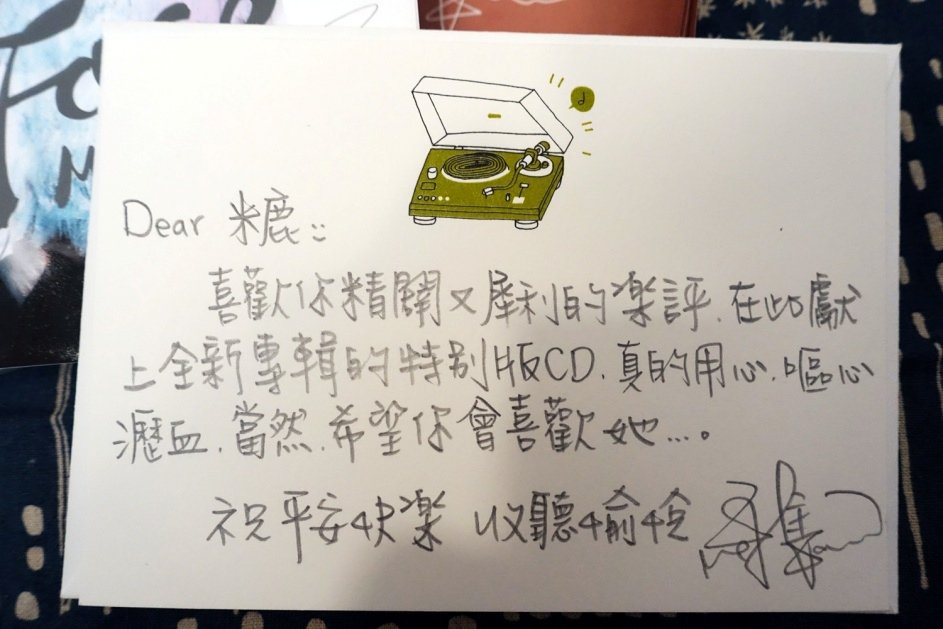 Dear 米鹿:
喜歡你精闢又犀利的楽評,在此獻
上全新專輯的特别版CD,真的用心,嘔心
瀝血,當然,希望你會喜歡她...。
祝平安快楽 收聽愉快